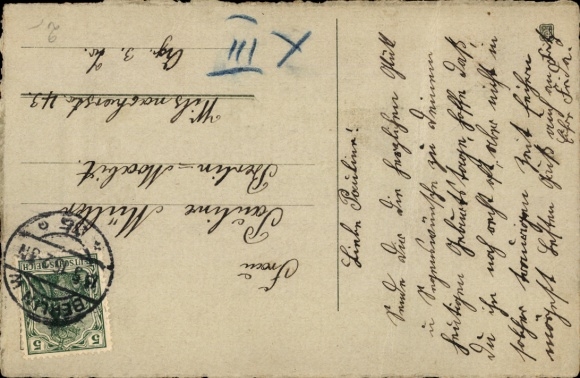 Frau
Pauline Müller
Berlin-Moabit.
Wilsnackerstr. 43
3. Tr.
XIII
DEUTSCHES REICH
5
5
BERLIN
Liebe Pauline!
Sende Dir die herzlichsten Glück
u Segenswünsche zu Deinem
heutigen Geburtstage, hoffe daß
Du ihn noch recht oft aber nicht in
solcher traurigen Zeit feiern
mögest. Besten Gruß auch an